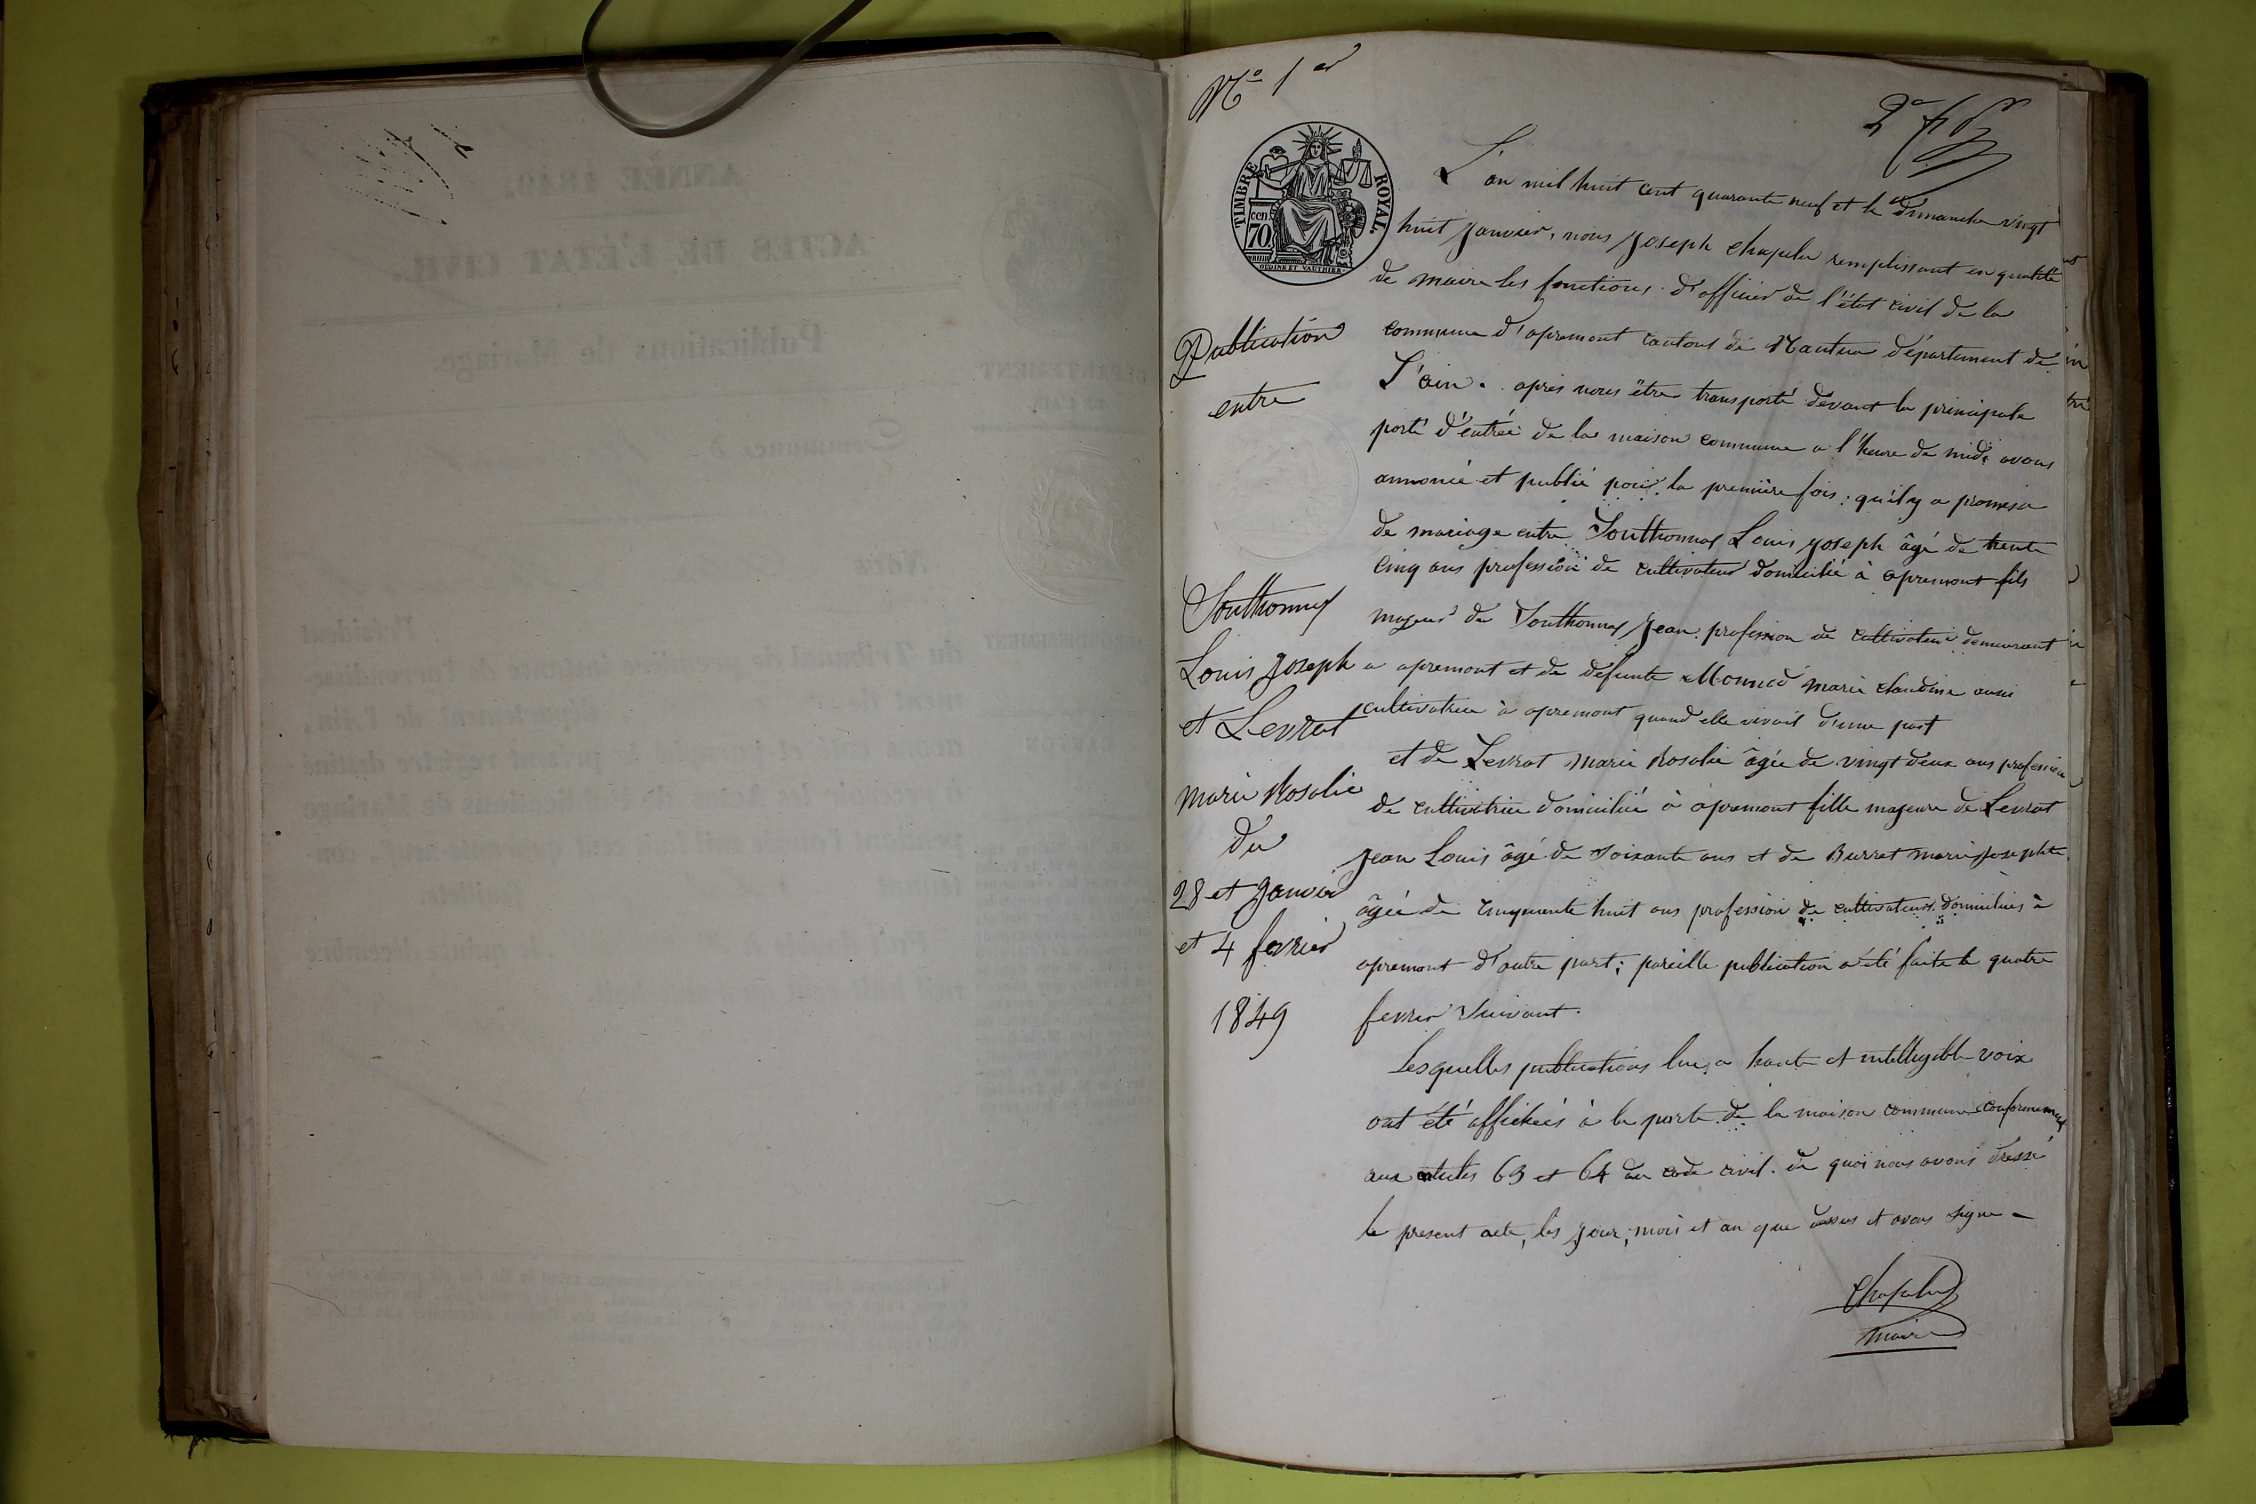 No 1er
2e f
TIMBRE ROYAL.
70 cen.
L'an mil huit cent quarante neuf et le dimanche vingt
huit janvier, nous Joseph Chapelu remplissant en qualité
de maire les fonctions d'officier de l'état civil de la
commune d'apremont canton de Nantua département de
L'ain. après nous être transporté devant la principale
porte d'entrée de la maison commune a l'heure de midi avons
annoncé et publié pour la première fois : qu'il y a promesse
de mariage entre Southonnax Louis joseph âgé de trente
cinq ans profession de cultivateur domicilié à apremont fils
majeur de Southonnax Jean profession de cultivateur demeurant
a apremont et de defunte marie claudine aussi
cultivatrice à apremont quand elle vivait d'une part
et de Levrat Marie Rosalie âgée de vingt deux ans profession
de cultivatrice domiciliée à apremont fille majeure de Levrat
Jean Louis âgé de Soixante ans et de Burrat marie Josephte
âgée de cinquante huit ans profession de cultivateurs domiciliés à
apremont d'autre part ; pareille publication a été faite le quatre
fevrier Suivant.
Lesquelles publications lues a haute et intellegible voix
ont été affichées à la porte de la maison commune conformement
aux articles 63 et 64 du code civil. de quoi nous avons dressé
le present acte, les jour, mois et an que dessus et avons signe -
Chapelu
maire
Publication
entre
Southonnax
Louis Joseph
et Levrat
Marie Rosalie
du
28 et Janvier
et 4 fevrier
1849
ANNÉE 1849.
ACTES DE L'ÉTAT CIVIL.
Publications de Mariage